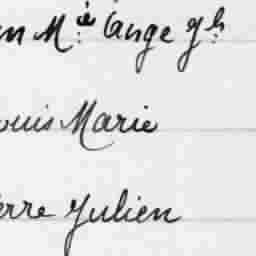 n Mie Ange Jh
ouis Marie
erre Julien